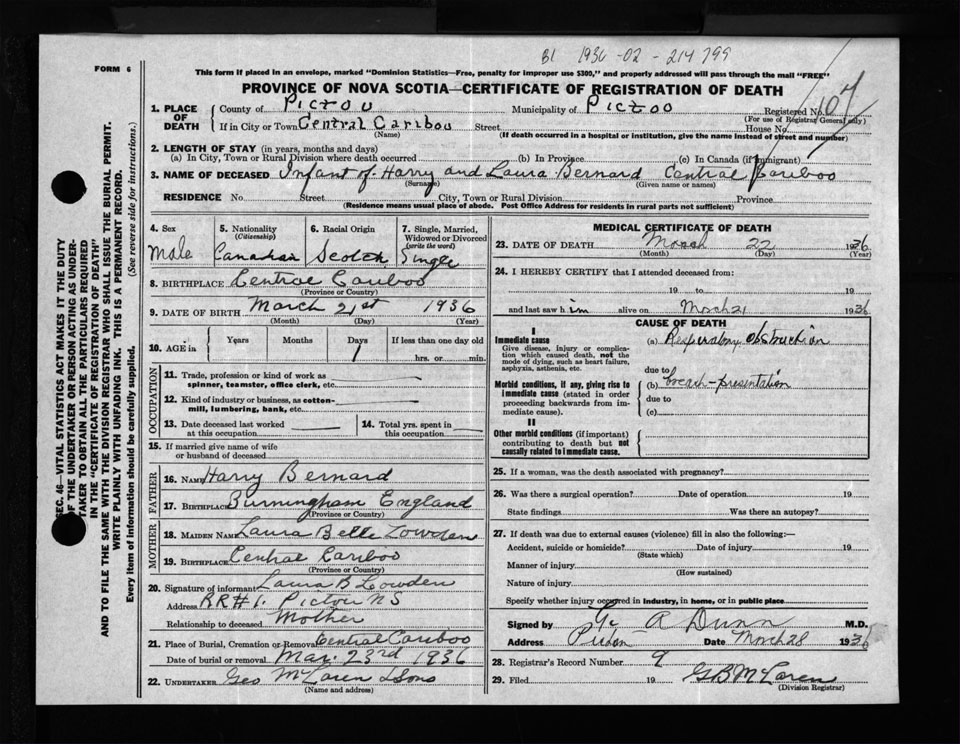 B1 1936 - 02 - 214799
FORM 6
This form if placed in an envelope, marked "Dominion Statistics—Free, penalty for improper use $300," and properly addressed will pass through the mail "FREE"
PROVINCE OF NOVA SCOTIA—CERTIFICATE OF REGISTRATION OF DEATH
1. PLACE OF DEATH
County of Pictou Municipality of Pictoo Registered No. 107
(For use of Registrar General only)
If in City or Town Central Cariboo Street House No.
(Name) (If death occurred in a hospital or institution, give the name instead of street and number)
2. LENGTH OF STAY (in years, months and days)
(a) In City, Town or Rural Division where death occurred (b) In Province (c) In Canada (if immigrant)
3. NAME OF DECEASED Infant of Harry and Laura Bernard Central Cariboo
(Surname) (Given name or names)
RESIDENCE No. Street City, Town or Rural Division Province
(Residence means usual place of abode. Post Office Address for residents in rural parts not sufficient)
4. Sex Male
5. Nationality (Citizenship) Canadian
6. Racial Origin Scotch
7. Single, Married, Widowed or Divorced (write the word) Single
8. BIRTHPLACE Central Cariboo
(Province or Country)
9. DATE OF BIRTH March 21st 1936
(Month) (Day) (Year)
10. AGE in Years Months Days 1 If less than one day old hrs. or min.
OCCUPATION
11. Trade, profession or kind of work as spinner, teamster, office clerk, etc.
12. Kind of industry or business, as cotton-mill, lumbering, bank, etc.
13. Date deceased last worked at this occupation
14. Total yrs. spent in this occupation
15. If married give name of wife or husband of deceased
FATHER
16. Name Harry Bernard
17. Birthplace Burmingham England
(Province or Country)
MOTHER
18. Maiden Name Laura Belle Lowden
19. Birthplace Central Cariboo
(Province or Country)
20. Signature of informant Laura B Lowden
Address RR#1. Pictou NS
Relationship to deceased Mother
21. Place of Burial, Cremation or Removal Central Cariboo
Date of burial or removal Mar. 23rd 1936
22. UNDERTAKER Geo McLaren & Sons
(Name and address)
MEDICAL CERTIFICATE OF DEATH
23. DATE OF DEATH March 22 1936
(Month) (Day) (Year)
24. I HEREBY CERTIFY that I attended deceased from:
19 to 19
and last saw him alive on March 21 1936
CAUSE OF DEATH
I
Immediate cause
Give disease, injury or complication which caused death, not the mode of dying, such as heart failure, asphyxia, asthenia, etc.
(a) Respiratory obstruction
due to
Morbid conditions, if any, giving rise to immediate cause (stated in order proceeding backwards from immediate cause).
(b) breach-presentation
due to
(c)
II
Other morbid conditions (if important) contributing to death but not causally related to immediate cause.
25. If a woman, was the death associated with pregnancy?
26. Was there a surgical operation? Date of operation 19
State findings Was there an autopsy?
27. If death was due to external causes (violence) fill in also the following:—
Accident, suicide or homicide? Date of injury 19
(State which)
Manner of injury
(How sustained)
Nature of injury
Specify whether injury occurred in industry, in home, or in public place
Signed by A Dunn M.D.
Address Date March 28 1936
28. Registrar's Record Number 9
29. Filed 19 GB McLaren
(Division Registrar)
SEC. 46—VITAL STATISTICS ACT MAKES IT THE DUTY
OF THE UNDERTAKER OR PERSON ACTING AS UNDER-
TAKER TO OBTAIN ALL THE PARTICULARS REQUIRED
IN THE "CERTIFICATE OF REGISTRATION OF DEATH"
AND TO FILE THE SAME WITH THE DIVISION REGISTRAR WHO SHALL ISSUE THE BURIAL PERMIT.
WRITE PLAINLY WITH UNFADING INK. THIS IS A PERMANENT RECORD.
Every item of information should be carefully supplied. (See reverse side for instructions.)